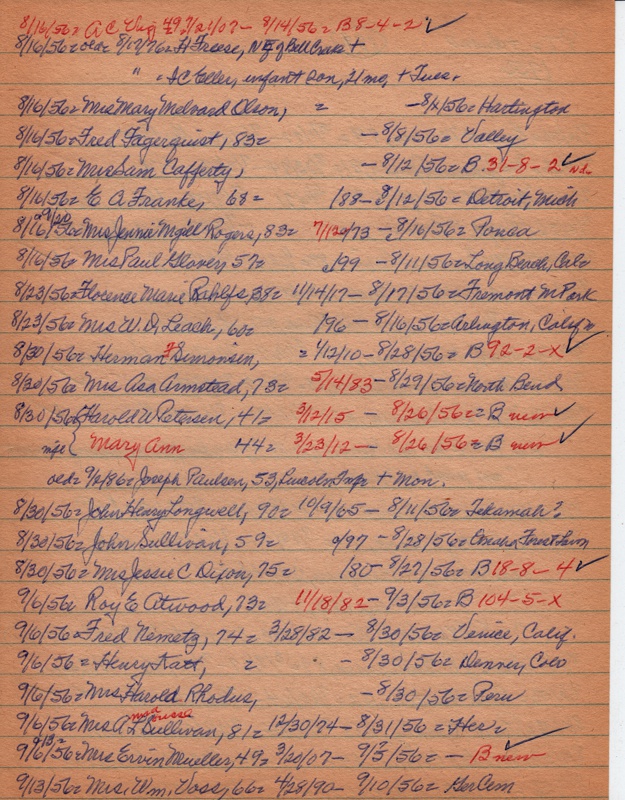 8/16/56= A C 49= 7/21/07 - 8/14/56= B 8-4-2 ✓
8/16/56= 8/17/76= H Freese, N of Bell Creek +
" = I C Eller, infant son, 21 mo, + Tues.
8/16/56= Mrs Mary Melvard Olson, = -8/ /56= Hartington
8/16/56= Fred Fagerquist, 83= - 8/8/56= Valley
8/16/56= Mrs Sam Cafferty, - 8/12/56= B. 31-8-2 ✓
8/16/56= E A Franke, 68= /88- 8/12/56= Detroit, Mich
8/16/56= 9/20 Mrs Jennie Mgill Rogers, 83= 7/12/73 - 8/16/56= Ponca
8/16/56= Mrs Paul Glover, 57= /99 - 8/11/56= Long Beach, Calif
8/23/56= Florence Marie Rahlfs, 38= 11/14/17- 8/17/56= Fremont M Park
8/23/56= Mrs W. D. Leach, 60= /96 - 8/16/56= Arlington, Calif
8/30/56= Herman F Simonsen, = 4/12/10- 8/28/56= B 92-2-X ✓
8/30/56= Mrs Asa Armstead, 73= 5/14/83- 8/29/56= North Bend
8/30/56= Harold W Petersen, 41= 3/12/15 - 8/26/56= B new ✓
{ Mary Ann 44= 3/23/12- 8/26/56= B new ✓
9/2/86= Joseph Paulsen, 53, Lincoln + Mon.
8/30/56= John Henry Longwell, 90= 10/9/65 - 8/11/56= Tekamah?
8/30/56= John Sullivan, 59= /97 - 8/28/56= Omaha Forest Lawn
8/30/56= Mrs Jessie C Dixon, 75= /80- 8/27/56= B 18-8-4 ✓
9/6/56= Roy E Atwood, 73= 11/18/82- 9/3/56= B 104-5-X
9/6/56= Fred Nemetz, 74= 3/28/82 - 8/30/56= Venice, Calif.
9/6/56= Henry Katt, = - 8/30/56= Denver, Colo
9/6/56= Mrs Harold Rhodus, - 8/30/56= Peru
9/6/56= Mrs A L Sullivan, 81= 12/30/74- 8/31/56=
9/6/56= 9/13= Mrs Ervin Mueller, 49= 3/20/07- 9/3/56= - B new ✓
9/13/56= Mrs, Wm, Voss, 66= 4/28/90- 9/10/56= Ger Cem